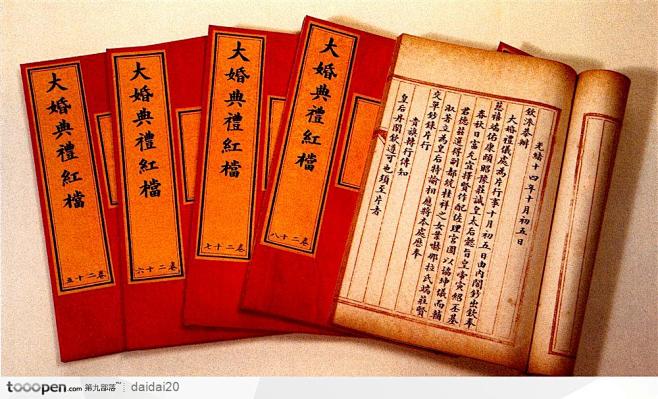 大婚典禮紅檔
卷二十五
大婚典禮紅檔
卷二十六
大婚典禮紅檔
卷二十七
大婚典禮紅檔
卷二十八
光緒十四年十月初五日
欽派恭辦
大婚禮儀處為片行事十月初五日由內閣鈔出欽奉
慈禧端佑康頤昭豫莊誠皇太后懿旨皇帝寅紹丕基
春秋日富允宜擇賢作配佐理宮闈以協坤儀而輔
君德茲選得副都統桂祥之女葉赫那拉氏端莊賢
淑著立為皇后特諭相應將本處歷奉
交單鈔錄片行
貴旗轉行傳知
皇后丹闡欽遵可也須至片者
tooopen.com 第九部落~ daidai20